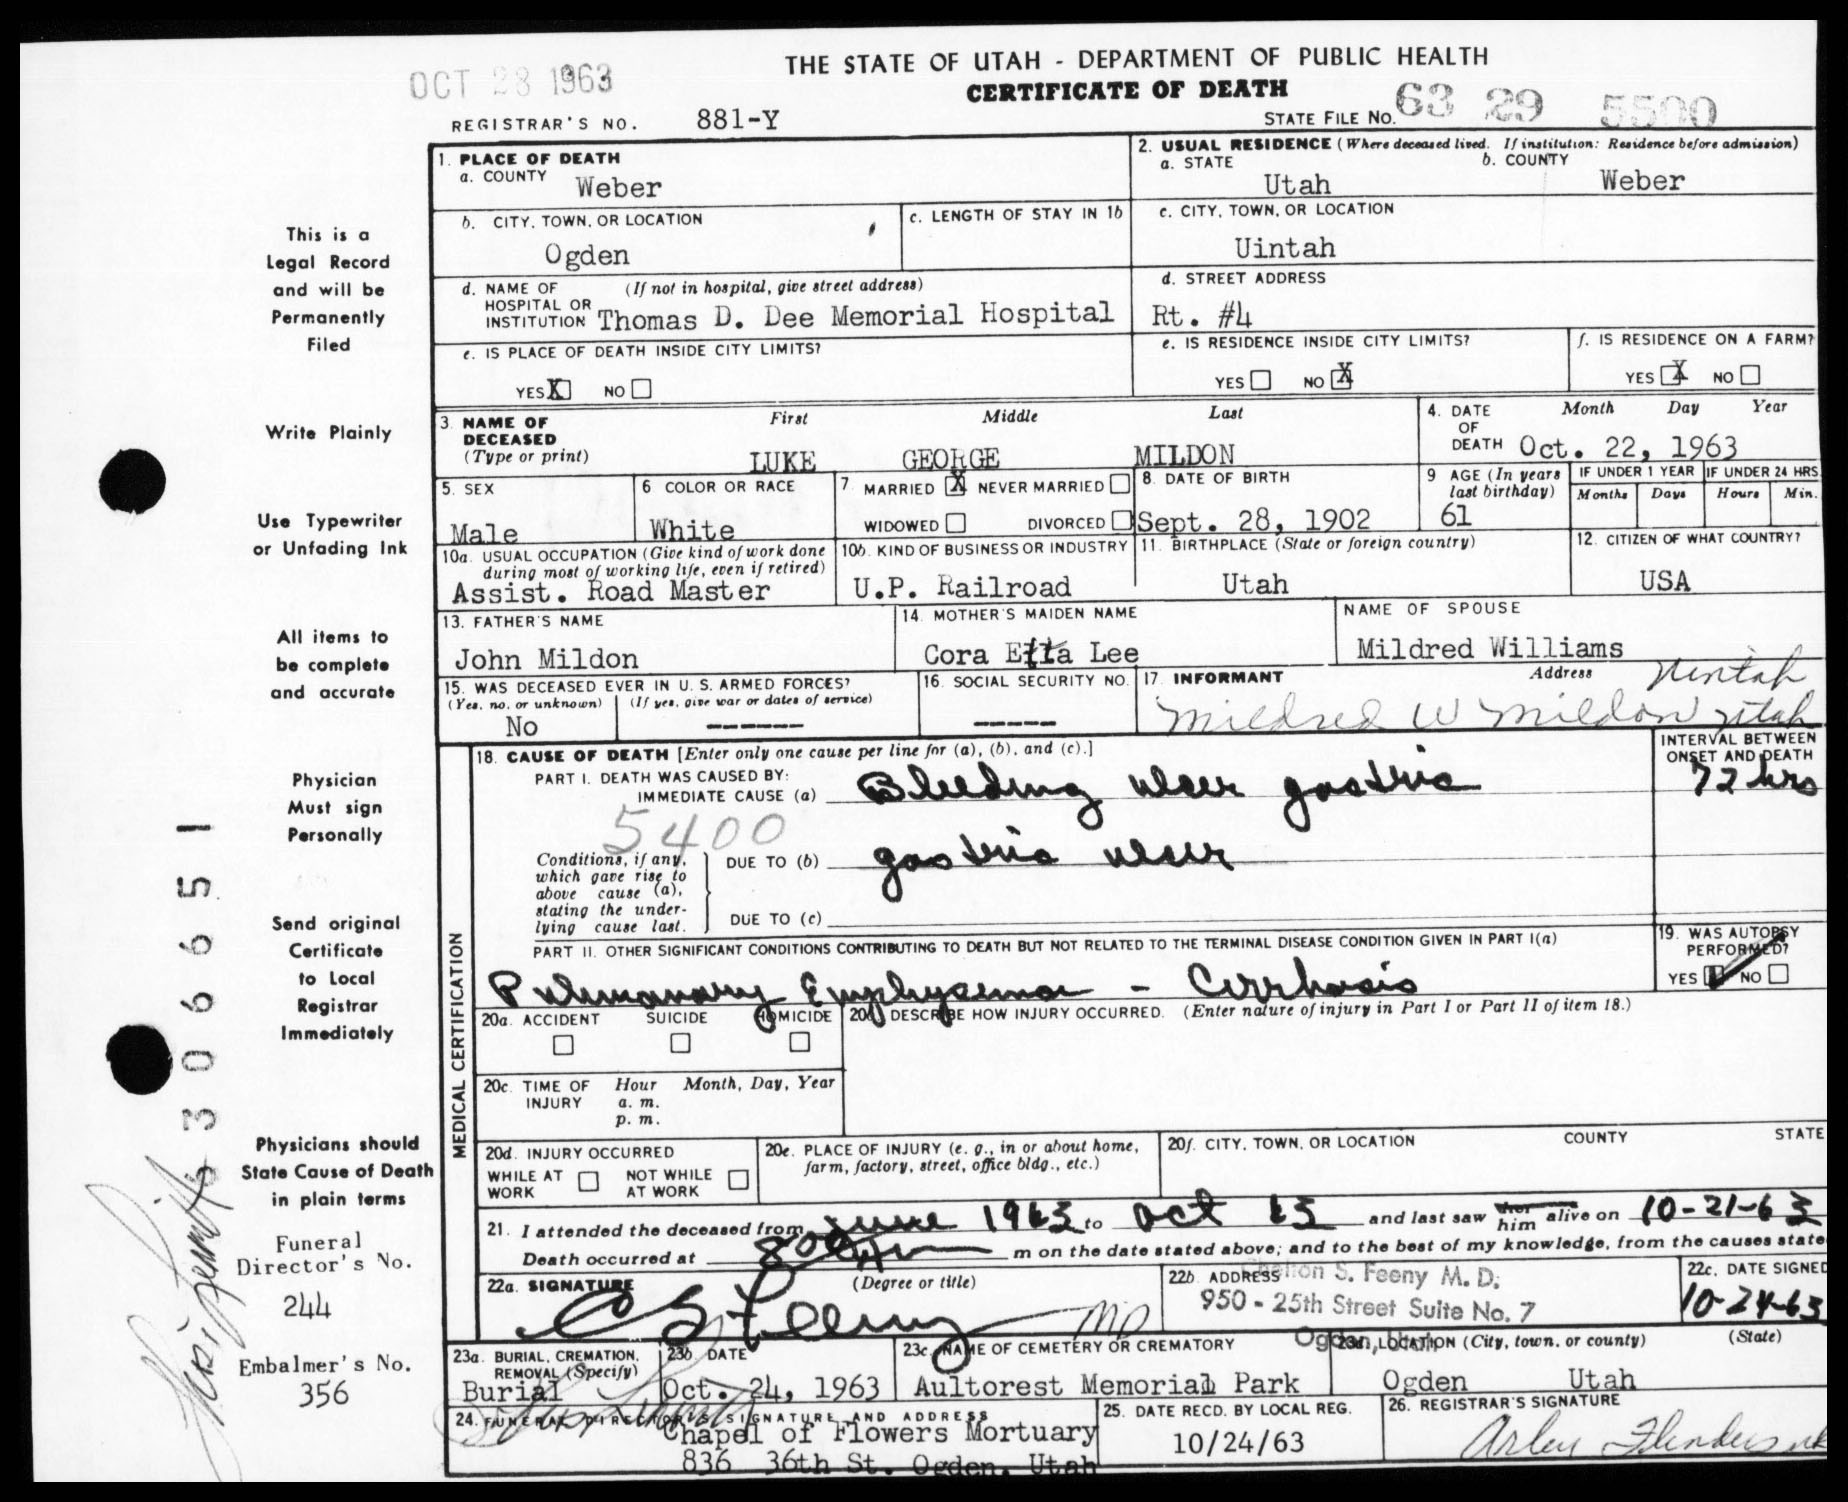 THE STATE OF UTAH - DEPARTMENT OF PUBLIC HEALTH
OCT 28 1963
CERTIFICATE OF DEATH
REGISTRAR'S NO. 881-Y
STATE FILE NO. 63 29 5500
1. PLACE OF DEATH
a. COUNTY Weber
2. USUAL RESIDENCE (Where deceased lived. If institution: Residence before admission)
a. STATE Utah b. COUNTY Weber
b. CITY, TOWN, OR LOCATION Ogden
c. LENGTH OF STAY IN 1b
c. CITY, TOWN, OR LOCATION Uintah
d. NAME OF HOSPITAL OR INSTITUTION (If not in hospital, give street address) Thomas D. Dee Memorial Hospital
d. STREET ADDRESS Rt. #4
e. IS PLACE OF DEATH INSIDE CITY LIMITS?
YES X NO
e. IS RESIDENCE INSIDE CITY LIMITS?
YES NO X
f. IS RESIDENCE ON A FARM?
YES X NO
3. NAME OF DECEASED (Type or print)
First Middle Last
LUKE GEORGE MILDON
4. DATE OF DEATH Month Day Year
Oct. 22, 1963
5. SEX Male
6 COLOR OR RACE White
7. MARRIED X NEVER MARRIED
WIDOWED DIVORCED
8. DATE OF BIRTH Sept. 28, 1902
9 AGE (In years last birthday) 61
IF UNDER 1 YEAR Months Days
IF UNDER 24 HRS. Hours Min.
10a. USUAL OCCUPATION (Give kind of work done during most of working life, even if retired)
Assist. Road Master
10b. KIND OF BUSINESS OR INDUSTRY U.P. Railroad
11. BIRTHPLACE (State or foreign country) Utah
12. CITIZEN OF WHAT COUNTRY? USA
13. FATHER'S NAME John Mildon
14. MOTHER'S MAIDEN NAME Cora Etta Lee
NAME OF SPOUSE Mildred Williams
15. WAS DECEASED EVER IN U. S. ARMED FORCES?
(Yes, no, or unknown) (If yes, give war or dates of service)
No ------
16. SOCIAL SECURITY NO. -----
17. INFORMANT Address
Mildred W Mildon Uintah Utah
18. CAUSE OF DEATH [Enter only one cause per line for (a), (b), and (c).]
INTERVAL BETWEEN ONSET AND DEATH
PART I. DEATH WAS CAUSED BY:
IMMEDIATE CAUSE (a) Bleeding ulcer gastric 72 hrs
5400
Conditions, if any, which gave rise to above cause (a), stating the underlying cause last.
DUE TO (b) gastric ulcer
DUE TO (c)
PART II. OTHER SIGNIFICANT CONDITIONS CONTRIBUTING TO DEATH BUT NOT RELATED TO THE TERMINAL DISEASE CONDITION GIVEN IN PART I(a)
Pulmonary Emphysema - Cirrhosis
19. WAS AUTOPSY PERFORMED?
YES NO
20a. ACCIDENT SUICIDE HOMICIDE
20b. DESCRIBE HOW INJURY OCCURRED. (Enter nature of injury in Part I or Part II of item 18.)
20c. TIME OF INJURY Hour Month, Day, Year
a. m.
p. m.
20d. INJURY OCCURRED
WHILE AT WORK NOT WHILE AT WORK
20e. PLACE OF INJURY (e. g., in or about home, farm, factory, street, office bldg., etc.)
20f. CITY, TOWN, OR LOCATION COUNTY STATE
21. I attended the deceased from June 1963 to Oct 63 and last saw her him alive on 10-21-63
Death occurred at 800 m on the date stated above; and to the best of my knowledge, from the causes state
22a. SIGNATURE (Degree or title)
C S Feeny MD
22b. ADDRESS
S. Feeny M. D.
950 - 25th Street Suite No. 7
Ogden, Utah
22c. DATE SIGNED 10-24-63
23a. BURIAL, CREMATION, REMOVAL (Specify) Burial
23b. DATE Oct. 24, 1963
23c. NAME OF CEMETERY OR CREMATORY Aultorest Memorial Park
23d. LOCATION (City, town, or county) (State)
Ogden Utah
24. FUNERAL DIRECTOR'S SIGNATURE AND ADDRESS
Chapel of Flowers Mortuary
836 36th St. Ogden, Utah
25. DATE RECD. BY LOCAL REG. 10/24/63
26. REGISTRAR'S SIGNATURE
This is a
Legal Record
and will be
Permanently
Filed
Write Plainly
Use Typewriter
or Unfading Ink
All items to
be complete
and accurate
Physician
Must sign
Personally
Send original
Certificate
to Local
Registrar
Immediately
Physicians should
State Cause of Death
in plain terms
Funeral
Director's No.
244
Embalmer's No.
356
MEDICAL CERTIFICATION